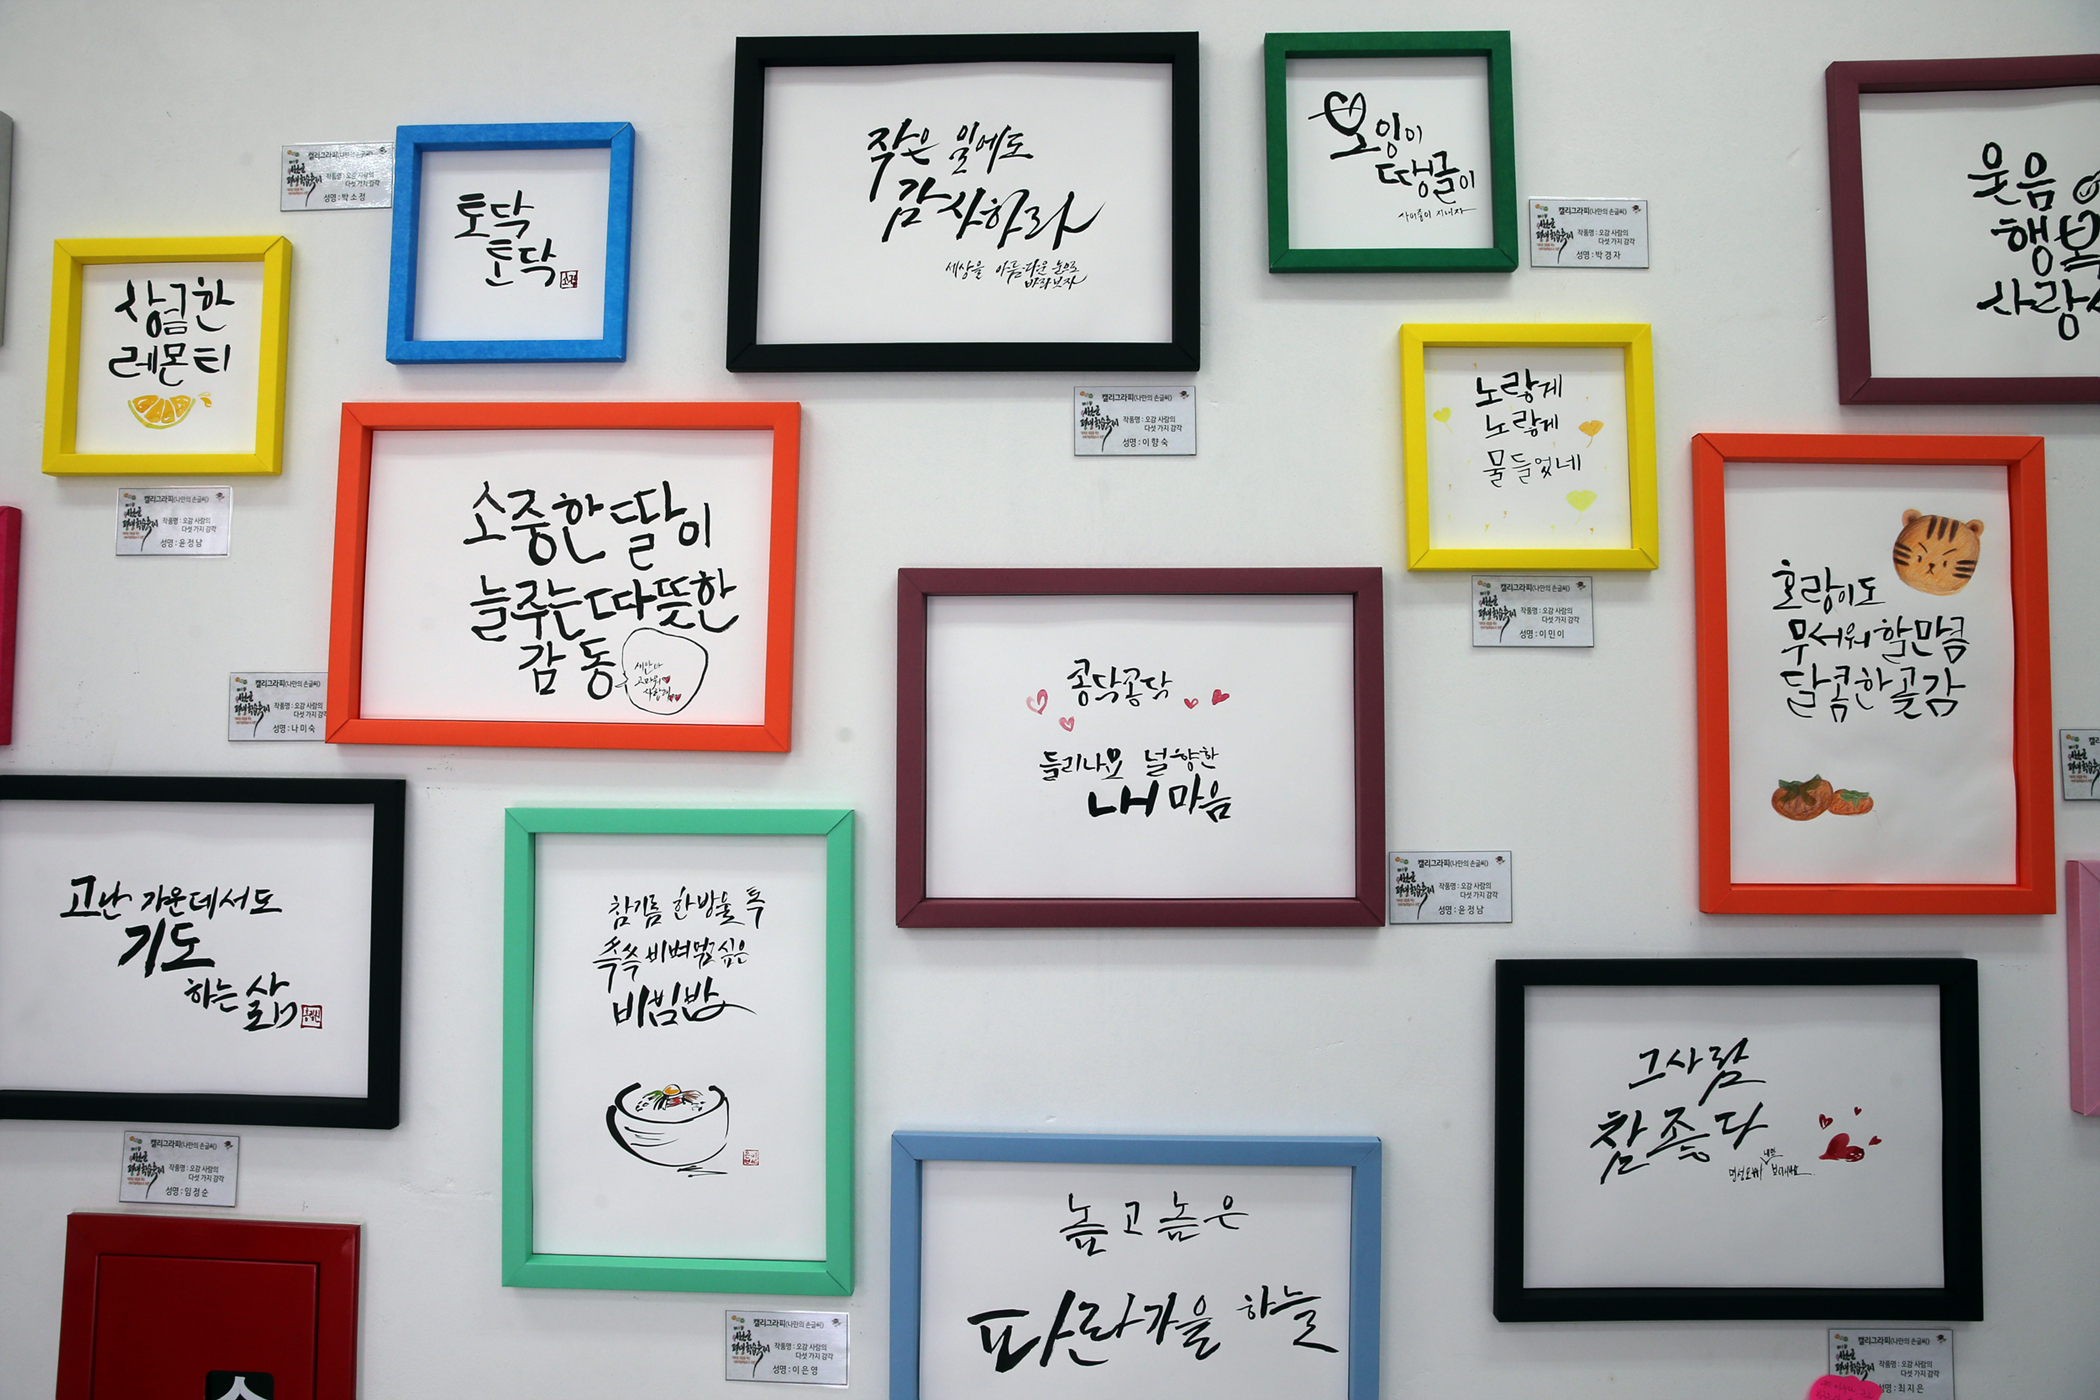 캘리그라피(나만의 손글씨)
작품명 : 오감 사람의
다섯 가지 감각
성명 : 박 소 정
토닥
토닥
상큼한
레몬티
캘리그라피(나만의 손글씨)
평생학습축제
작품명 : 오감 사람의
다섯 가지 감각
성명 : 윤 정 남
작은 일에도
감사하라
세상을 아름다운 눈으로
바라보자
캘리그라피(나만의 손글씨)
평생학습축제
작품명 : 오감 사람의
다섯 가지 감각
성명 : 이 향 숙
오잉이
땡글이
사이좋이 지내자
캘리그라피(나만의 손글씨)
평생학습축제
작품명 : 오감 사람의
다섯 가지 감각
성명 : 박 경 자
웃음
행복
사랑
노랗게
노랗게
물들었네
캘리그라피(나만의 손글씨)
평생학습축제
작품명 : 오감 사람의
다섯 가지 감각
성명 : 이 민 이
소중한 딸이
늘 주는 따뜻한
감동
고마워
사랑해
캘리그라피(나만의 손글씨)
평생학습축제
작품명 : 오감 사람의
다섯 가지 감각
성명 : 나 미 숙
콩닥콩닥
들리나요 널 향한
내 마음
캘리그라피(나만의 손글씨)
평생학습축제
작품명 : 오감 사람의
다섯 가지 감각
성명 : 윤 정 남
호랑이도
무서워 할만큼
달콤한 곶감
고난 가운데서도
기도
하는 삶
캘리그라피(나만의 손글씨)
평생학습축제
작품명 : 오감 사람의
다섯 가지 감각
성명 : 임 정 순
참기름 한방울 톡
쓱쓱 비벼먹고 싶은
비빔밥
캘리그라피(나만의 손글씨)
평생학습축제
작품명 : 오감 사람의
다섯 가지 감각
성명 : 이 은 영
높고 높은
파란가을 하늘
그사람
참 좋다
캘리그라피(나만의 손글씨)
작품명 : 오감 사람의
다섯 가지 감각
성명 : 최 지 은
소